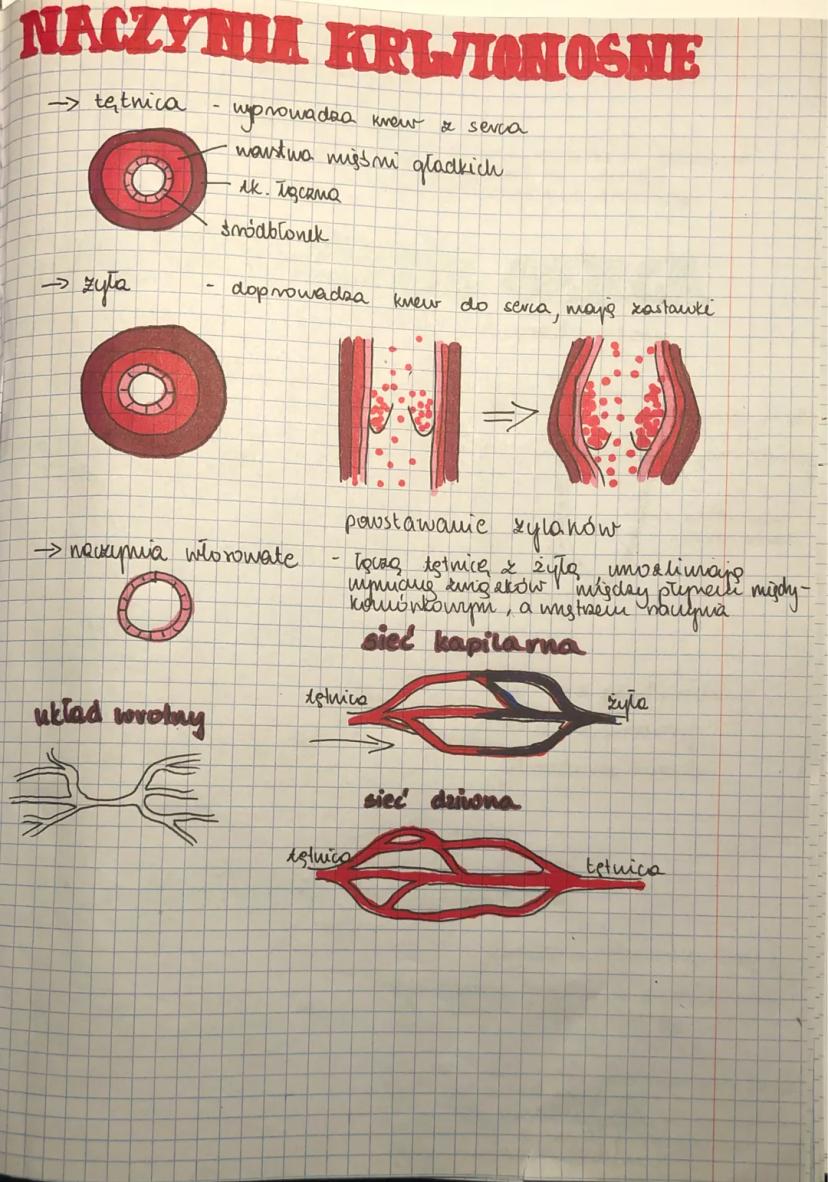 NACZYNIA KRWIONOSNE
→ tętnica - wyprowadza krew z serca
warstwa mięśni gładkich
tk. łączna
śródbłonek
→ żyła - doprowadza krew do serca, mają zastawki
powstawanie żylaków
→ naczynia włosowate - łączą tętnicę z żyłą umożliwiają
wymianę związków między płynem między-
komórkowym, a wnętrzem naczynia
sieć kapilarna
tętnica żyła
układ wrotny
sieć dziwna
tętnica tętnica